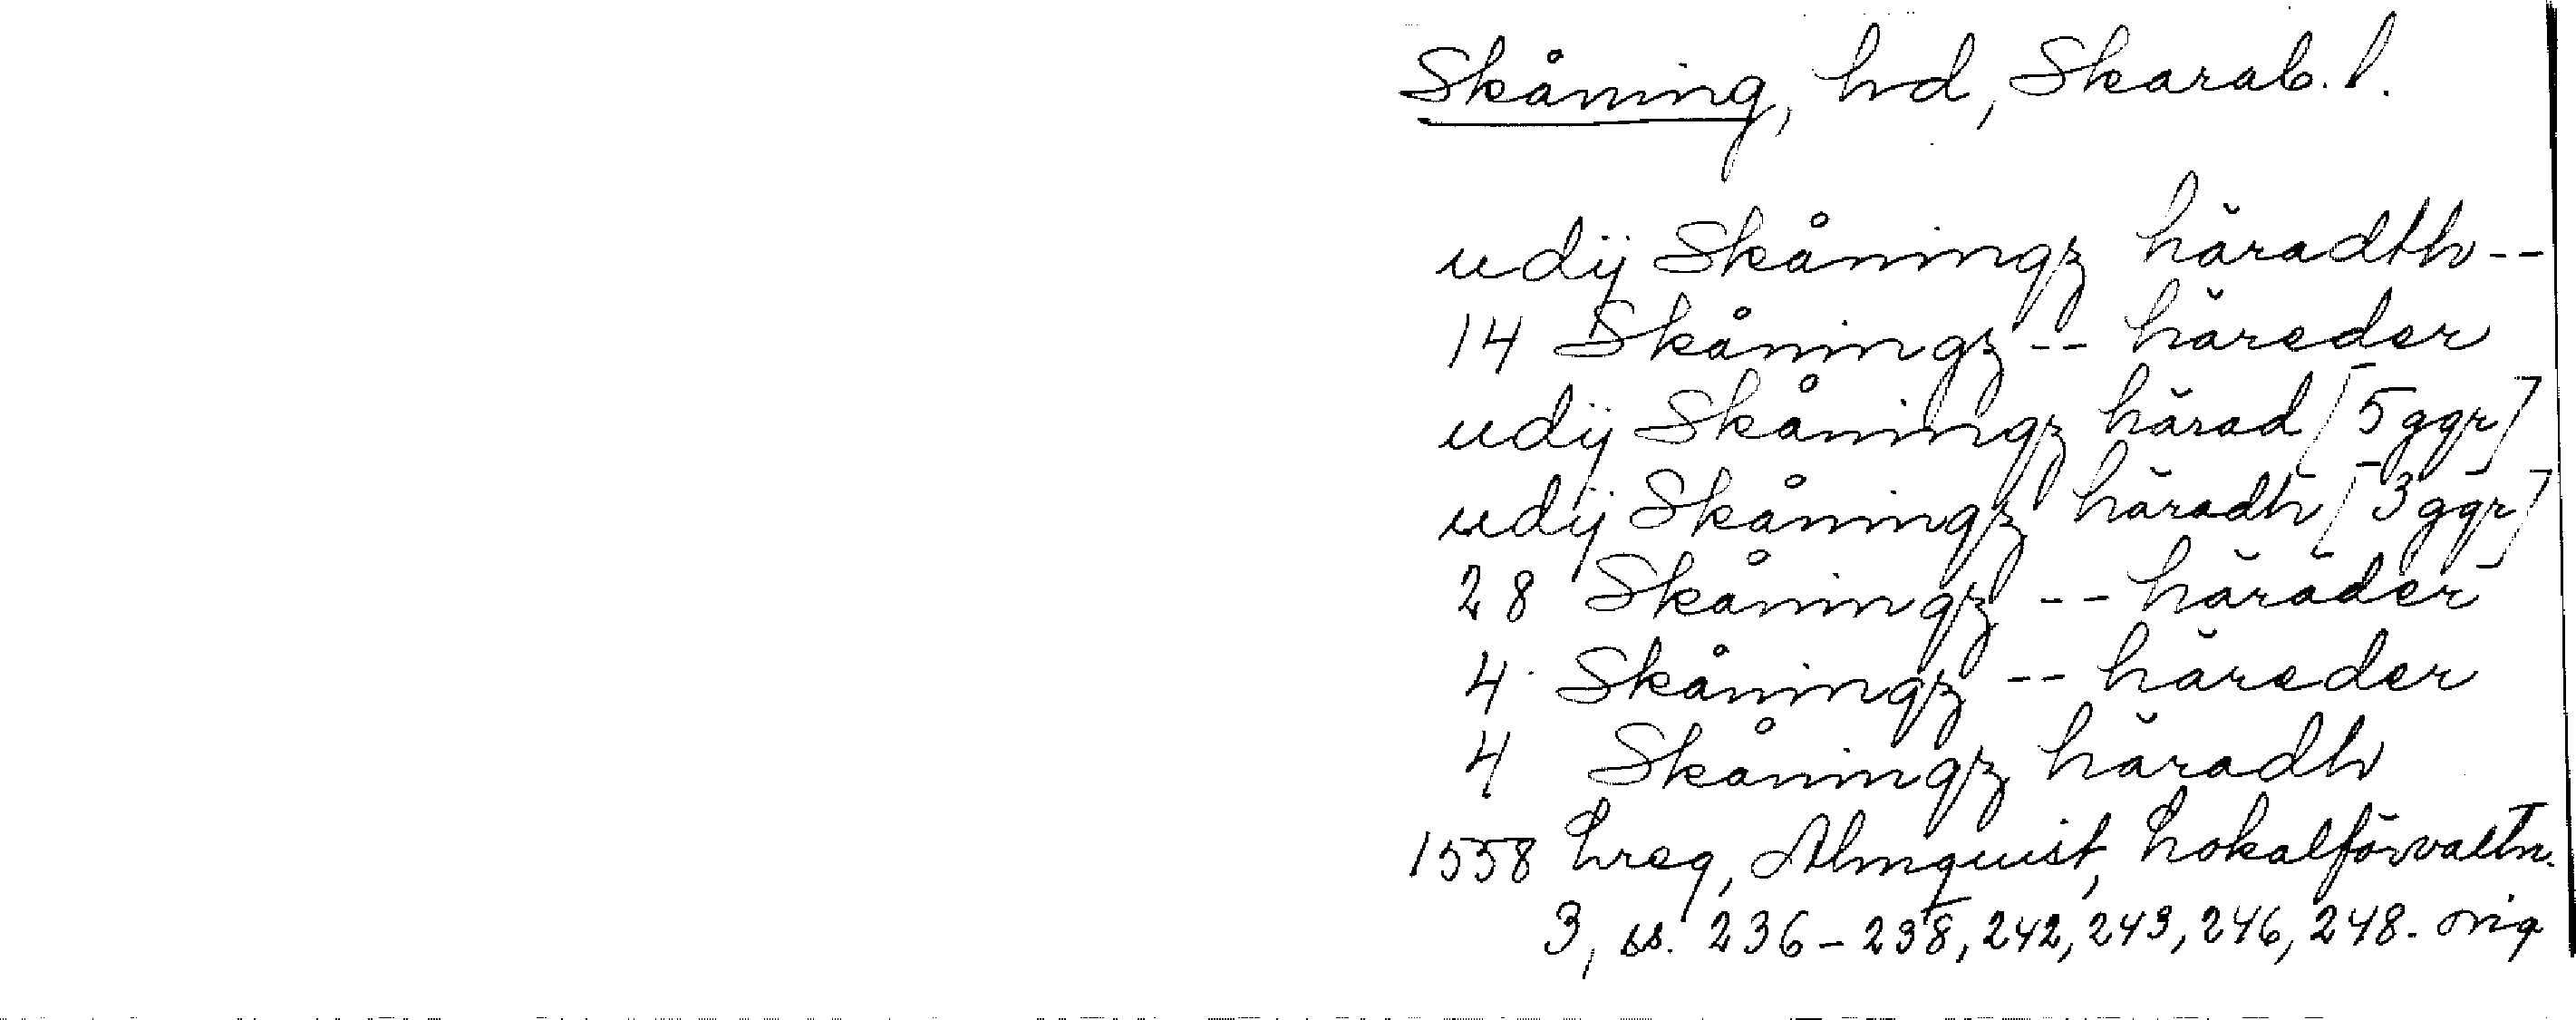 Skåning, hd, Skarab. l.
udij Skåningz häradth--
14 Skåningz -- häreder
udij Skåningz härad [5 ggr]
udij Skåningz häradh [3 ggr]
28 Skåningz -- häräder
4 Skåningz -- häreder
4 Skåningz häradh
1558 Lreg, Almquist, Lokalförvaltn.
3, ss. 236-238, 242, 243, 246, 248. orig